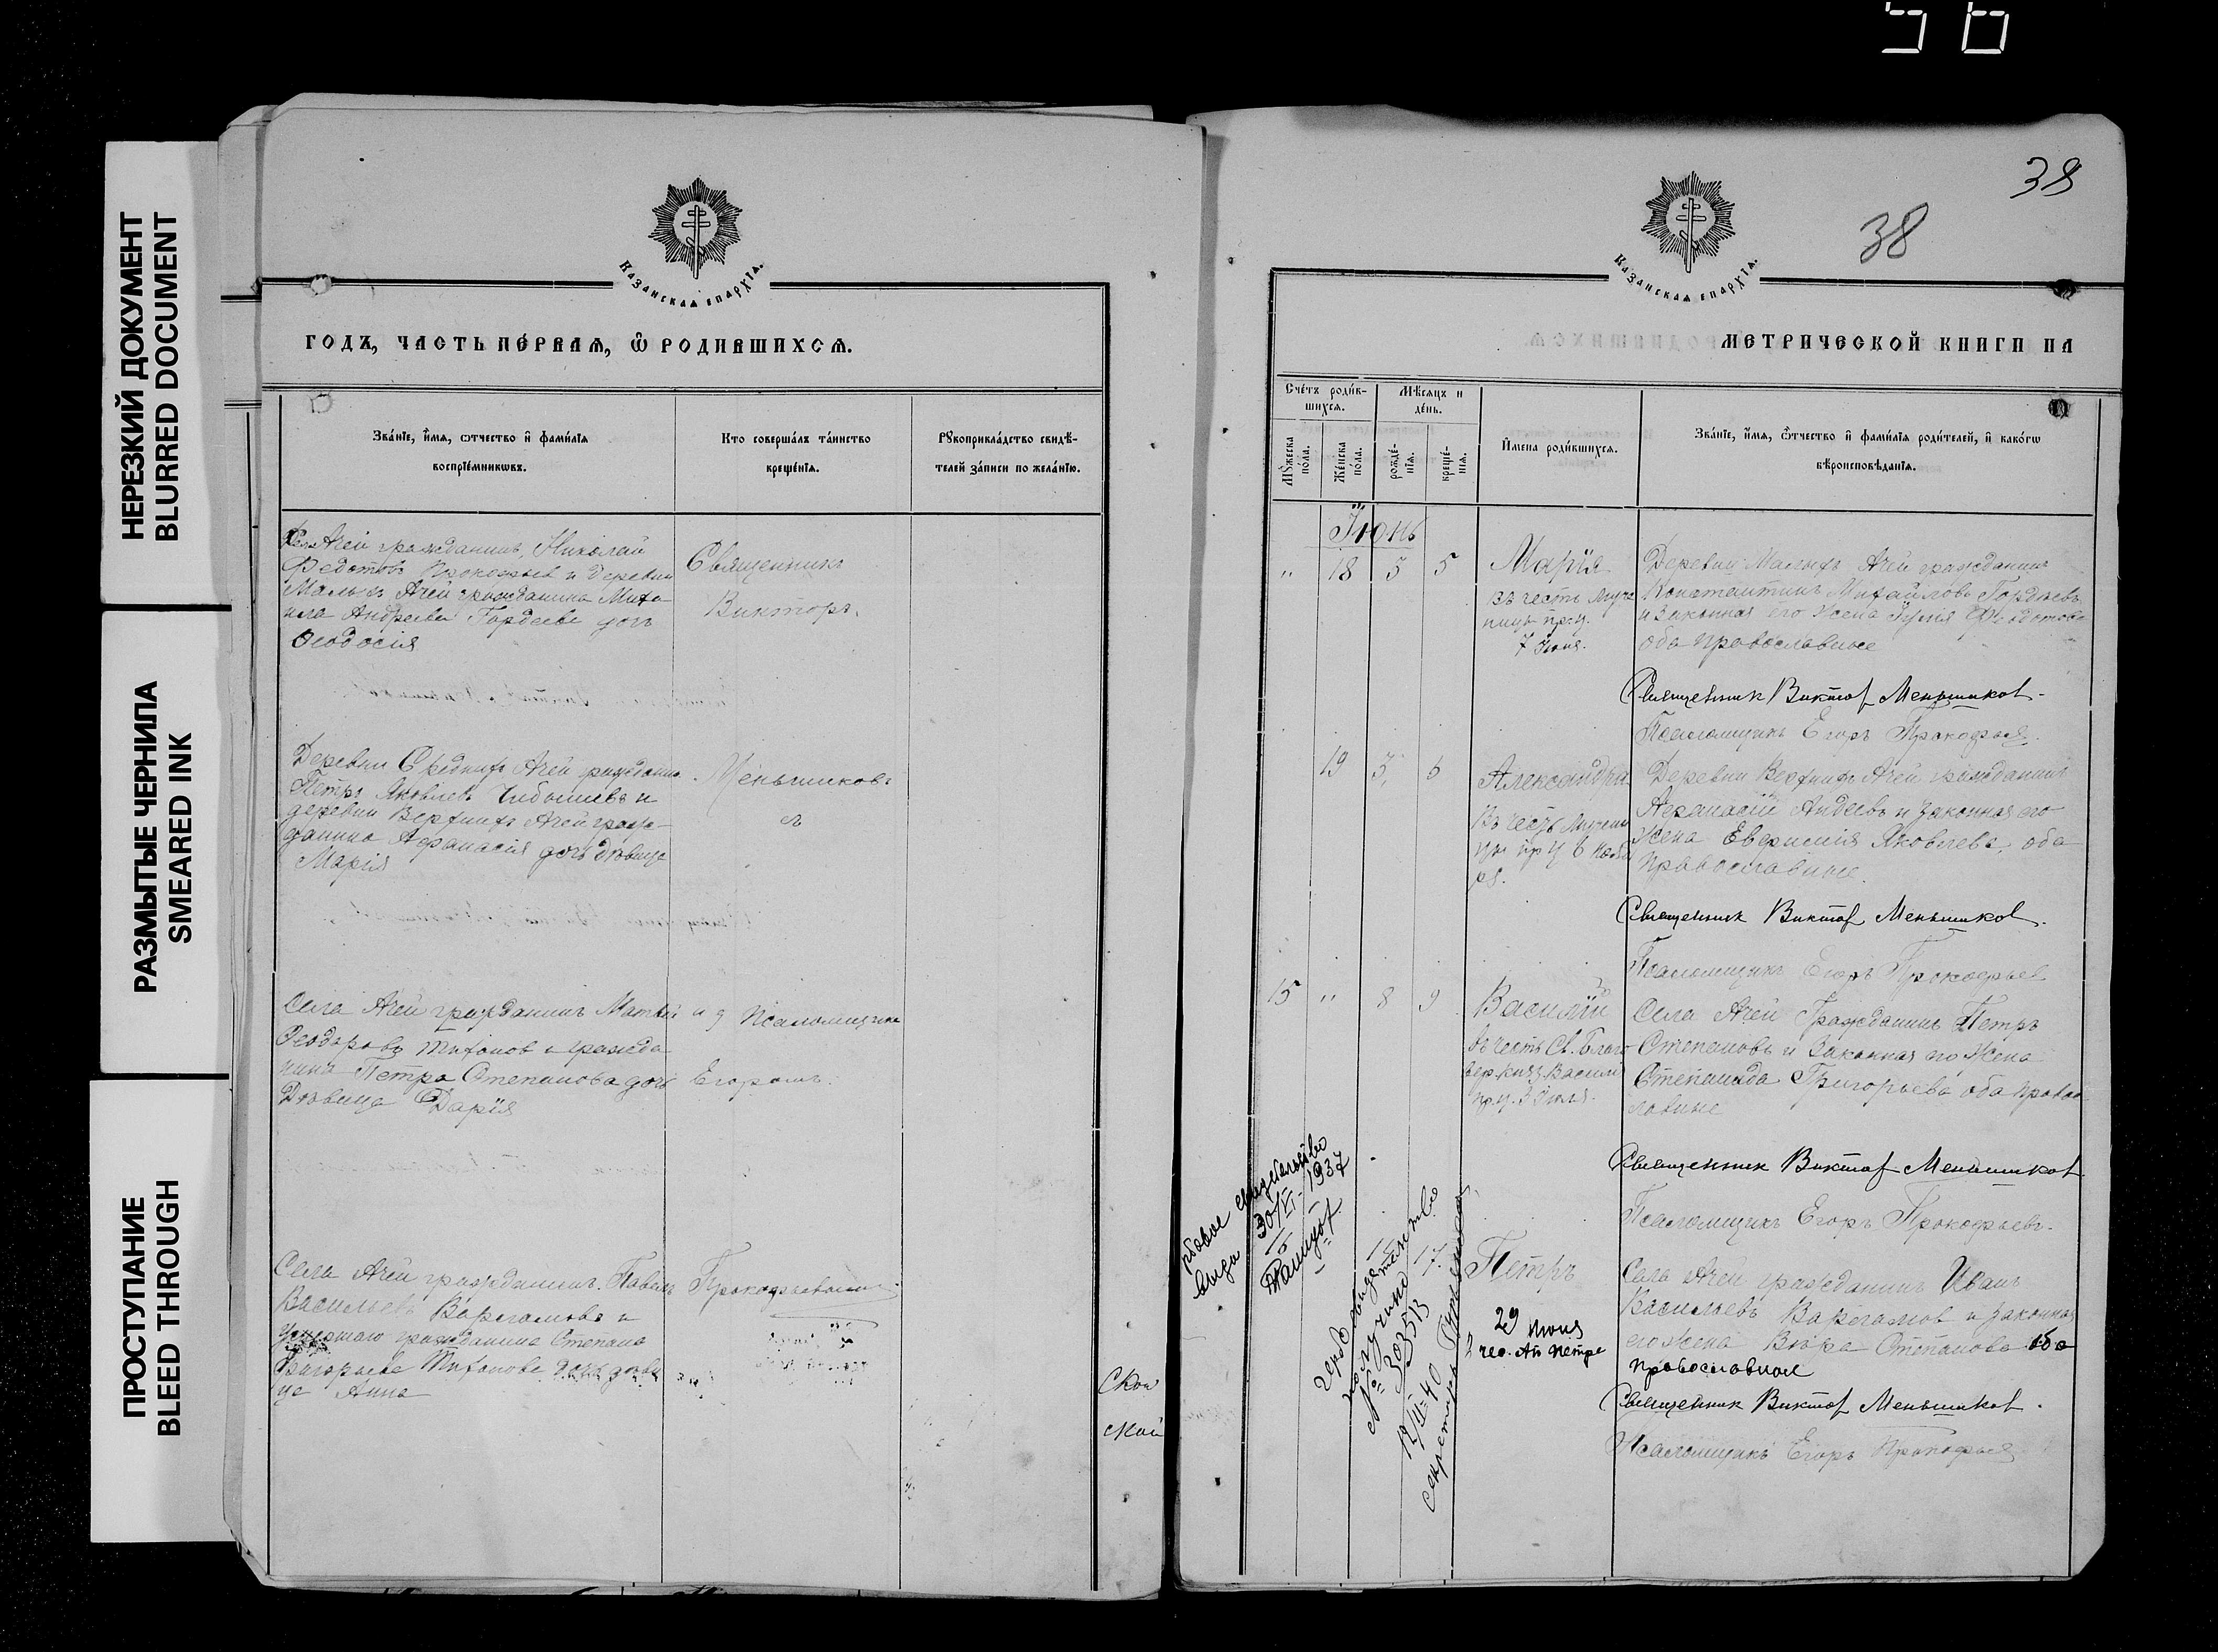 56
НЕРЕЗКИЙ ДОКУМЕНТ
BLURRED DOCUMENT
РАЗМЫТЫЕ ЧЕРНИЛА
SMEARED INK
ПРОСТУПАНИЕ
BLEED THROUGH
Казанская епархїѧ.
ГОДЪ, ЧАСТЬ ПЕ́РВАѦ, Ѽ РОДИВШИХСѦ.
Зва́нїе, и҆́мѧ, ѻтчество и҆ фами́лїѧ
воспрїе́мникѡвъ.
Кто соверша́лъ та́инство
креще́нїѧ.
Рꙋкоприкла́дство свидѣ́-
телей за́писи по жела́нїю.
Ачей гражданинъ, Николай
Федотовъ Прокофьев и Деревни
Малыхъ Ачей гражданина Миха-
ила Андреева Гордеева дочь
Феодосія
Священникъ
Викторъ
Деревни Среднихъ Ачей граждан.
Петръ Яковлевъ и
деревни Верхнихъ Ачей граж-
данина Афанасія дочь дѣвица
Марія
Меньшиковъ
Села Ачей гражданинъ Матвѣй
Феодоровъ Тихонов и гражда
нина Петра Степанова дочь
Дѣвица Дарія
и д Псаломщика
Егоромъ
Села Ачей гражданинъ Павелъ
Васильевъ и
Умершаго гражданина Степана
Григорьева Тихонова дочь дѣви
ца Анна
Прокофьевымъ
ской
ской
38
38
Казанская епархїѧ.
МЕТРИЧЕСКОЙ КНИГИ НА
Сче́тъ роди́в-
шихсѧ.
Мѣ́сѧцъ и
де́нь.
Мꙋ́жеска
по́ла.
Же́нска
по́ла.
рожде́-
нїѧ.
креще́-
нїѧ.
И҆мена роди́вшихсѧ.
Зва́нїе, и҆́мѧ, ѻ҆́тчество и҆ фами́лїѧ роди́телей, и҆ како́гѡ
вѣроисповѣ́данїѧ.
Іюнь
" 18 3 5
Марія
въ честь Муче
ницы пр.ц.
7 Іюня.
Деревни Малыхъ Ачей гражданинъ
Константинъ Михайловъ Гордѣевъ
и законная его жена Федотова
оба православные
Священник Виктор Меньшиков.
Псаломщикъ Егоръ Прокофьев.
19 3 6
Александра
Въ честь Мучени
цы пр ц 6 Нояб
ря.
Деревни Верхнихъ Ачей гражданинъ
Афанасій Андеевъ и законная его
жена Евфимія Яковлева, оба
православные.
Священник Виктор Меньшиков.
Псаломщикъ Егоръ Прокофьев
15 " 8 9
Василій
въ честь Св. Благо-
вер. княз. Васил
пр.ц. 3 Іюля.
Села Ачей Гражданинъ Петръ
Степановъ и Законная его Жена
Степанида Григорьева оба правос
лавные
Священник Виктор Меньшиков.
Псаломщикъ Егоръ Прокофьевъ.
15 17.
Петръ
29 Июня
чес. Ап Петра
Села Ачей гражданинъ Иванъ
Васильевъ и законная
его жена Вѣра Степанова оба
православные
Священник Виктор Меньшиков.
Псаломщикъ Егоръ Прокофьев
свидетельство
выдан 30/VI-1937
Гербо свидетельство
получено
№ 303513
12/II-40
секретарь